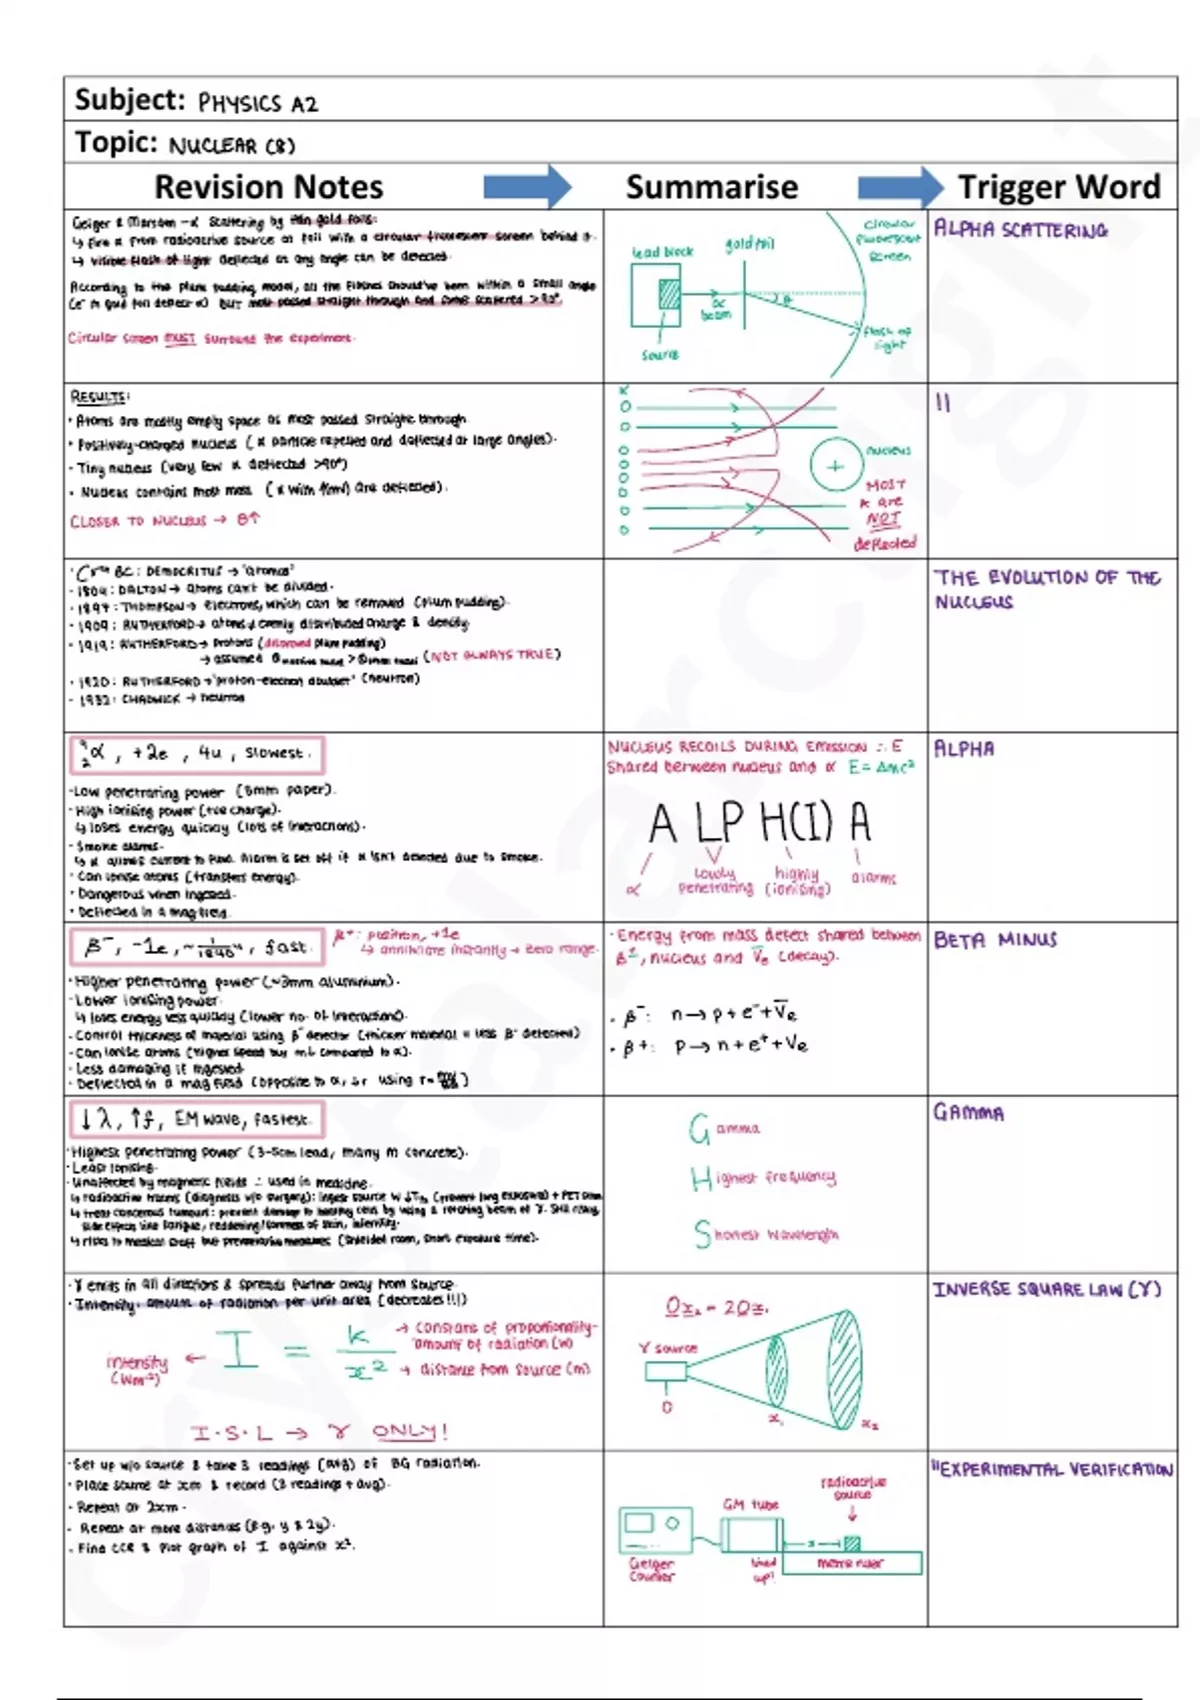 Subject: PHYSICS A2
Topic: NUCLEAR (8)
Revision Notes
Summarise
Trigger Word
Geiger & Marsden - α Scattering by thin gold foils:
↳ fire α from radioactive source at foil with a circular fluorescent screen behind it.
↳ visible flash of light deflected at any angle can be detected.
According to the plum pudding model, all the flashes should've been within a small angle
(e⁻ in gold foil deflect α) BUT most passed straight through and some scattered > 90°.
Circular screen MUST surround the experiment.
lead block
gold foil
circular
fluorescent
screen
α
beam
θ
source
flash of
light
ALPHA SCATTERING
RESULTS:
• Atoms are mostly empty space as most passed straight through.
• Positively-charged nucleus (α particle repelled and deflected at large angles).
• Tiny nucleus (very few α deflected >90°)
• Nucleus contains most mass (α with are deflected).
CLOSER TO NUCLEUS → θ↑
α
+
nucleus
MOST
α are
NOT
deflected
11
• C5th BC: DEMOCRITUS → 'atomos'
• 1804: DALTON → atoms can't be divided.
• 1897: THOMPSON → electrons, which can be removed (plum pudding).
• 1909: RUTHERFORD → atoms ≠ evenly distributed charge & density
• 1919: RUTHERFORD → protons (disproved plum pudding)
→ assumed (NOT ALWAYS TRUE)
• 1920: RUTHERFORD → 'proton-electron doublet' (neutron)
• 1932: CHADWICK → neutron
THE EVOLUTION OF THE
NUCLEUS
⁴₂α, +2e, 4u, slowest.
• Low penetrating power (5mm paper).
• High ionising power (+ve charge).
↳ loses energy quickly (lots of interactions).
• Smoke alarms.
↳ α allows current to flow. Alarm is set off if α isn't detected due to smoke.
• Can ionise atoms (transfers energy).
• Dangerous when ingested.
• Deflected in a mag field.
NUCLEUS RECOILS DURING EMISSION ∴ E
Shared between nucleus and α E = Δmc²
A LP H(I) A
α
lowly
penetrating
highly
(ionising)
alarms
ALPHA
β⁻, -1e, ~1/1840 u, fast.
β⁺: positron, +1e
↳ annihilate instantly → zero range.
• Higher penetrating power (~3mm aluminium).
• Lower ionising power.
↳ loses energy less quickly (lower no. of interactions).
• Control thickness of material using β⁻ detector (thicker material = less β⁻ detected)
• Can ionise atoms (higher speed but m↓ compared to α).
• Less damaging if ingested
• Deflected in a mag field (opposite to α, ↓r using r = )
• Energy from mass defect shared between
β±, nucleus and ν̅e (decay).
• β⁻: n → p + e⁻ + ν̅e
• β⁺: p → n + e⁺ + νe
BETA MINUS
↓λ, ↑f, EM wave, fastest.
• Highest penetrating power (3-5cm lead, many m concrete).
• Least ionising.
• Unaffected by magnetic fields ∴ used in medicine.
↳ radioactive tracers (diagnosis w/o surgery): ingest source w ↓T½ (prevent long exposure) + PET scan.
↳ treat cancerous tumours: prevent damage to healthy cells by using a rotating beam of γ. Still risky,
side effects like fatigue, reddening/soreness of skin, infertility.
↳ risks to medical staff but preventative measures (shielded room, short exposure time).
Gamma
Highest frequency
Shortest wavelength
GAMMA
• γ emits in all directions & spreads further away from source.
• Intensity: amount of radiation per unit area (decreases!!!)
intensity
(Wm⁻²)
← I = k/x²
→ constant of proportionality-
amount of radiation (W)
→ distance from source (m)
I.S.L → γ ONLY!
Ox₂ = 2Ox₁
γ source
O
x₁
x₂
INVERSE SQUARE LAW (γ)
• Set up w/o source & take 3 readings (avg) of BG radiation.
• Place source at xm & record (3 readings + avg).
• Repeat at 2xm.
• Repeat at more distances (e.g. y & 2y).
• Find CCR & plot graph of I against x².
radioactive
source
GM tube
x
Geiger
Counter
lined
up!
metre ruler
"EXPERIMENTAL VERIFICATION